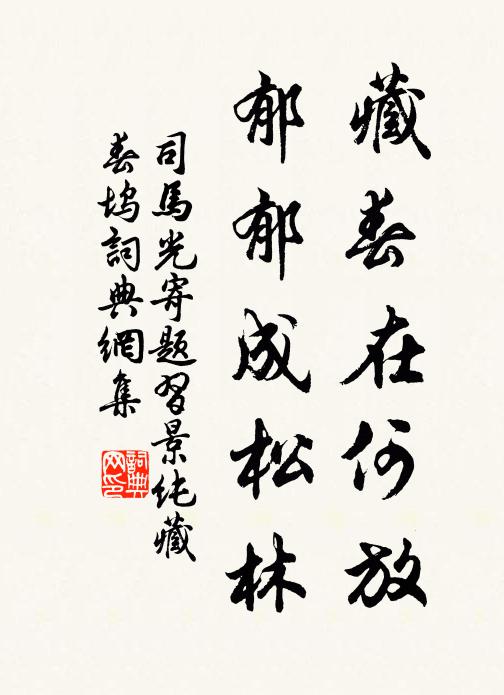 藏春在何放
郁郁成松林
司馬光寄題習景纯藏
春塢詞典網集
詞典
网印